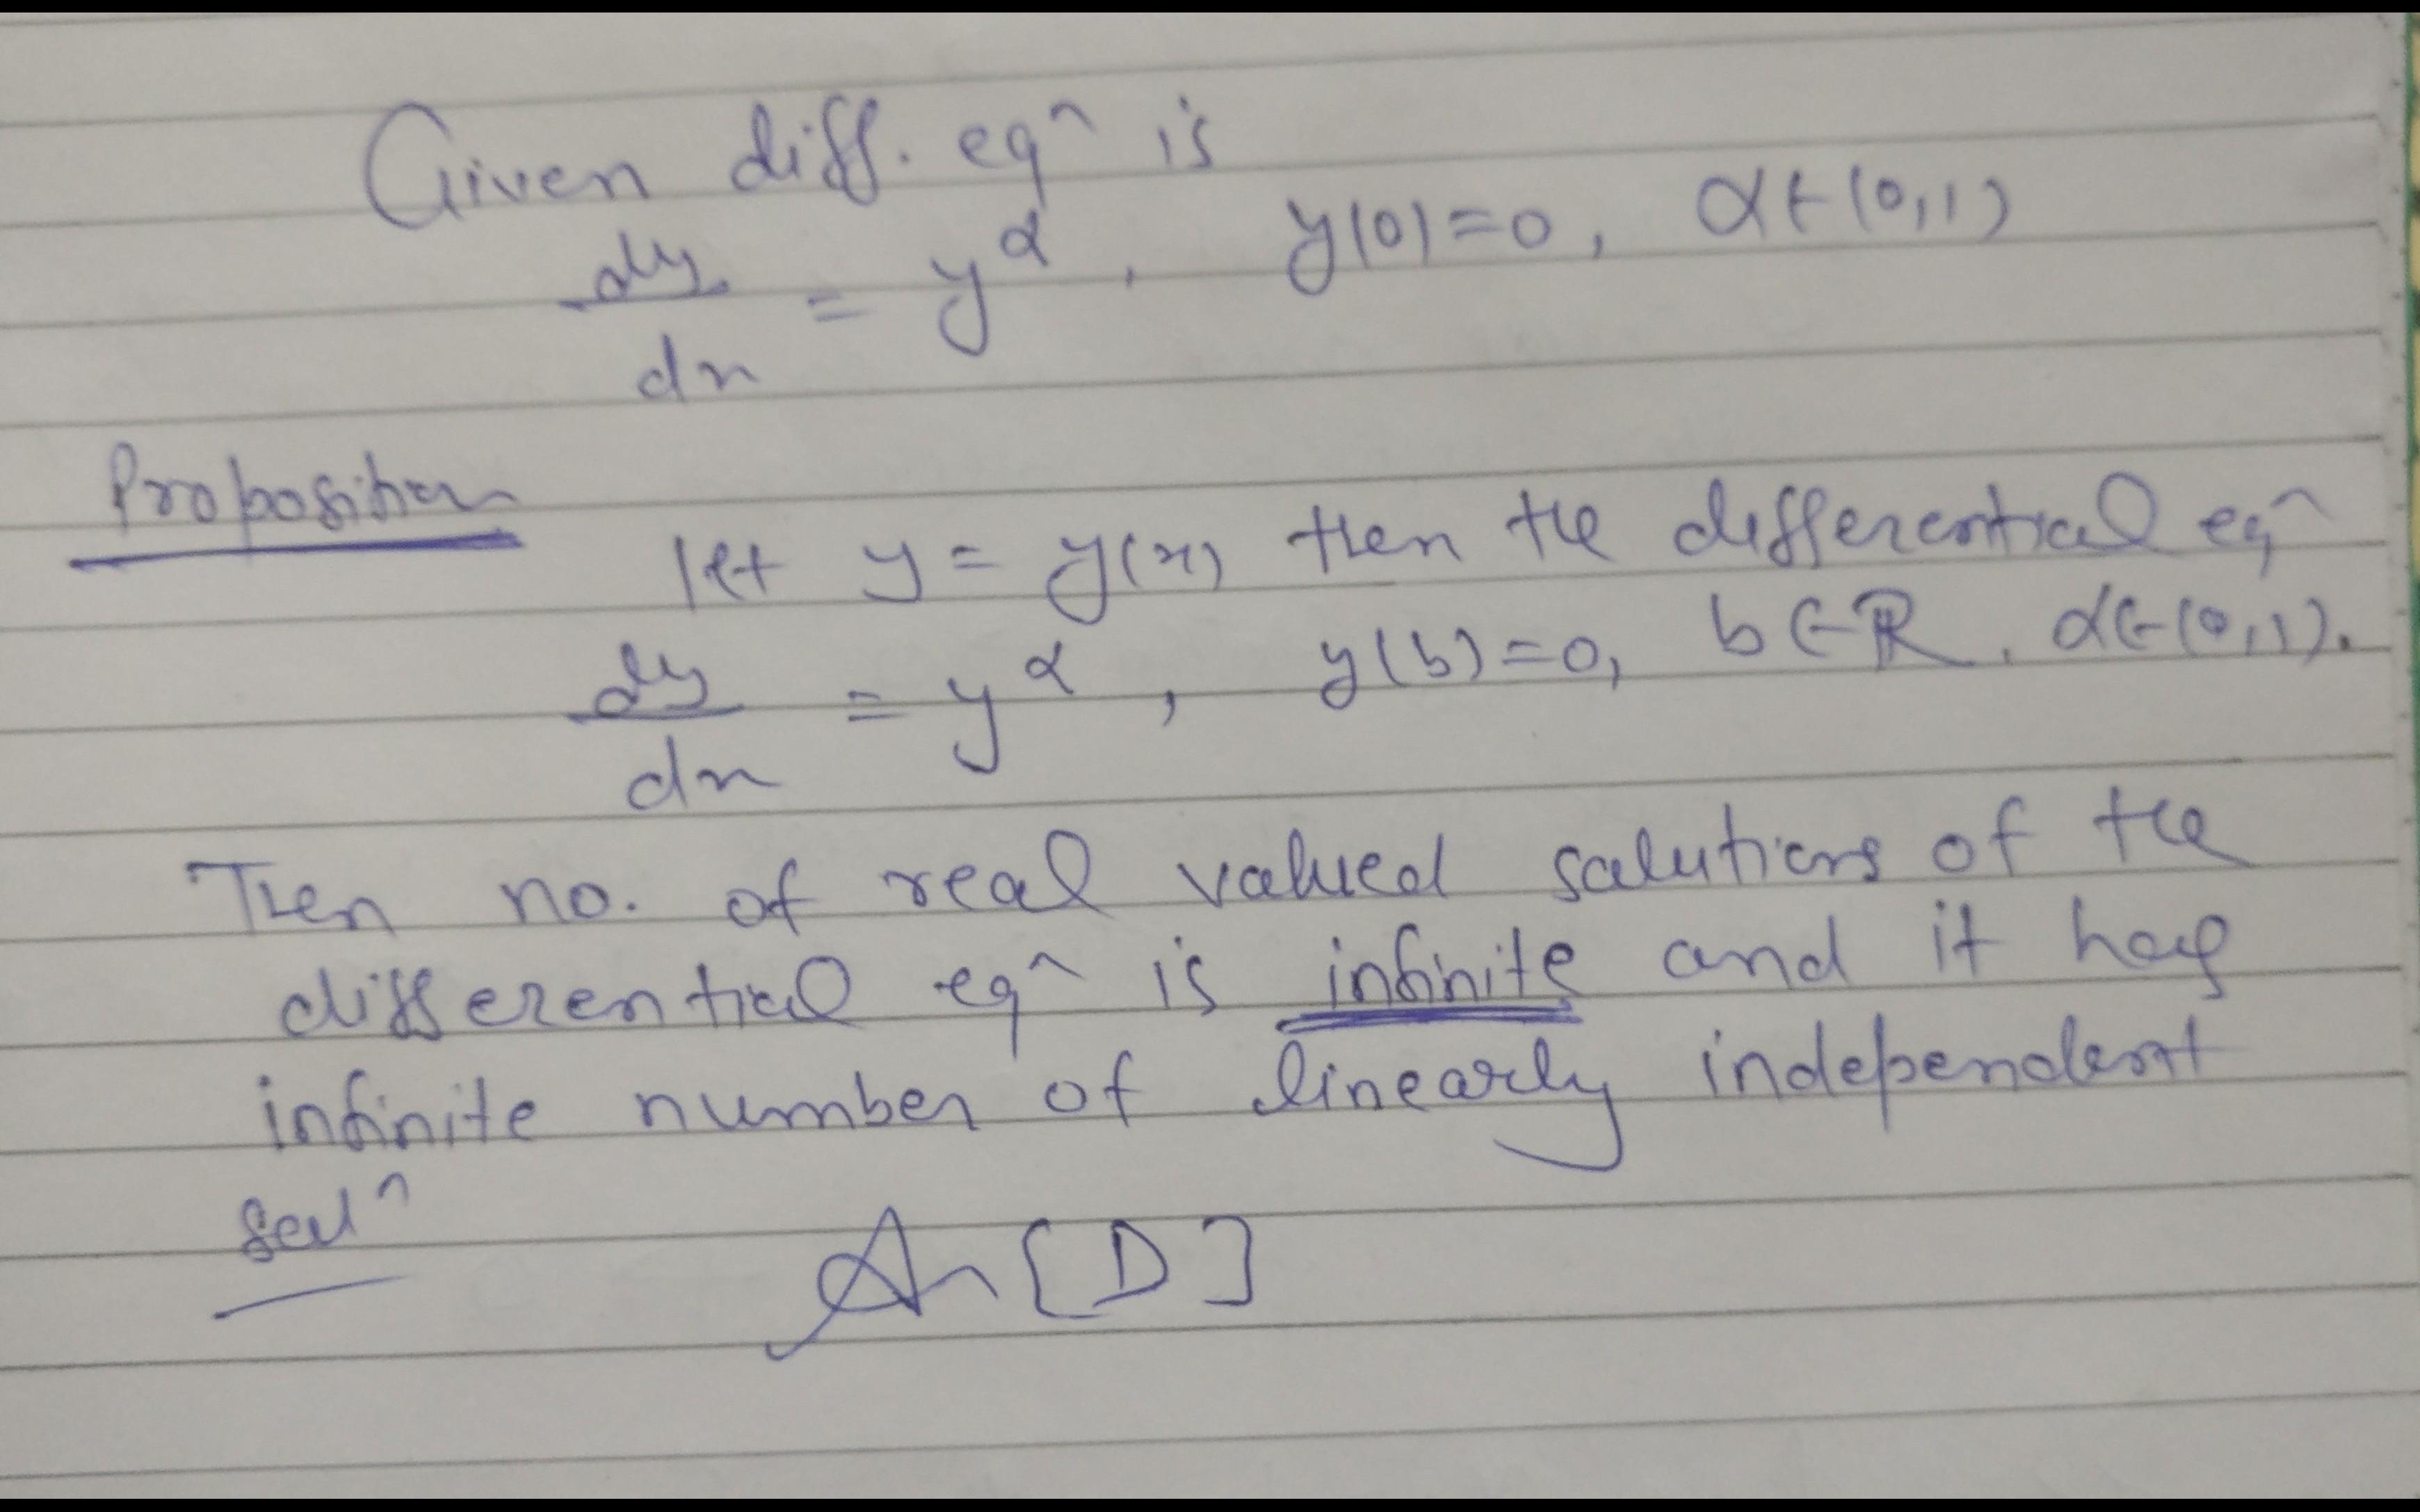 Given diff. eq^n is
dy/dx = y^α, y(0)=0, α∈(0,1)
Proposition
let y = y(x) then the differential eq^n
dy/dx = y^α, y(b)=0, b∈ℝ, α∈(0,1).
Then no. of real valued solutions of the
differential eq^n is infinite and it has
infinite number of linearly independent
sol^n
An [D]